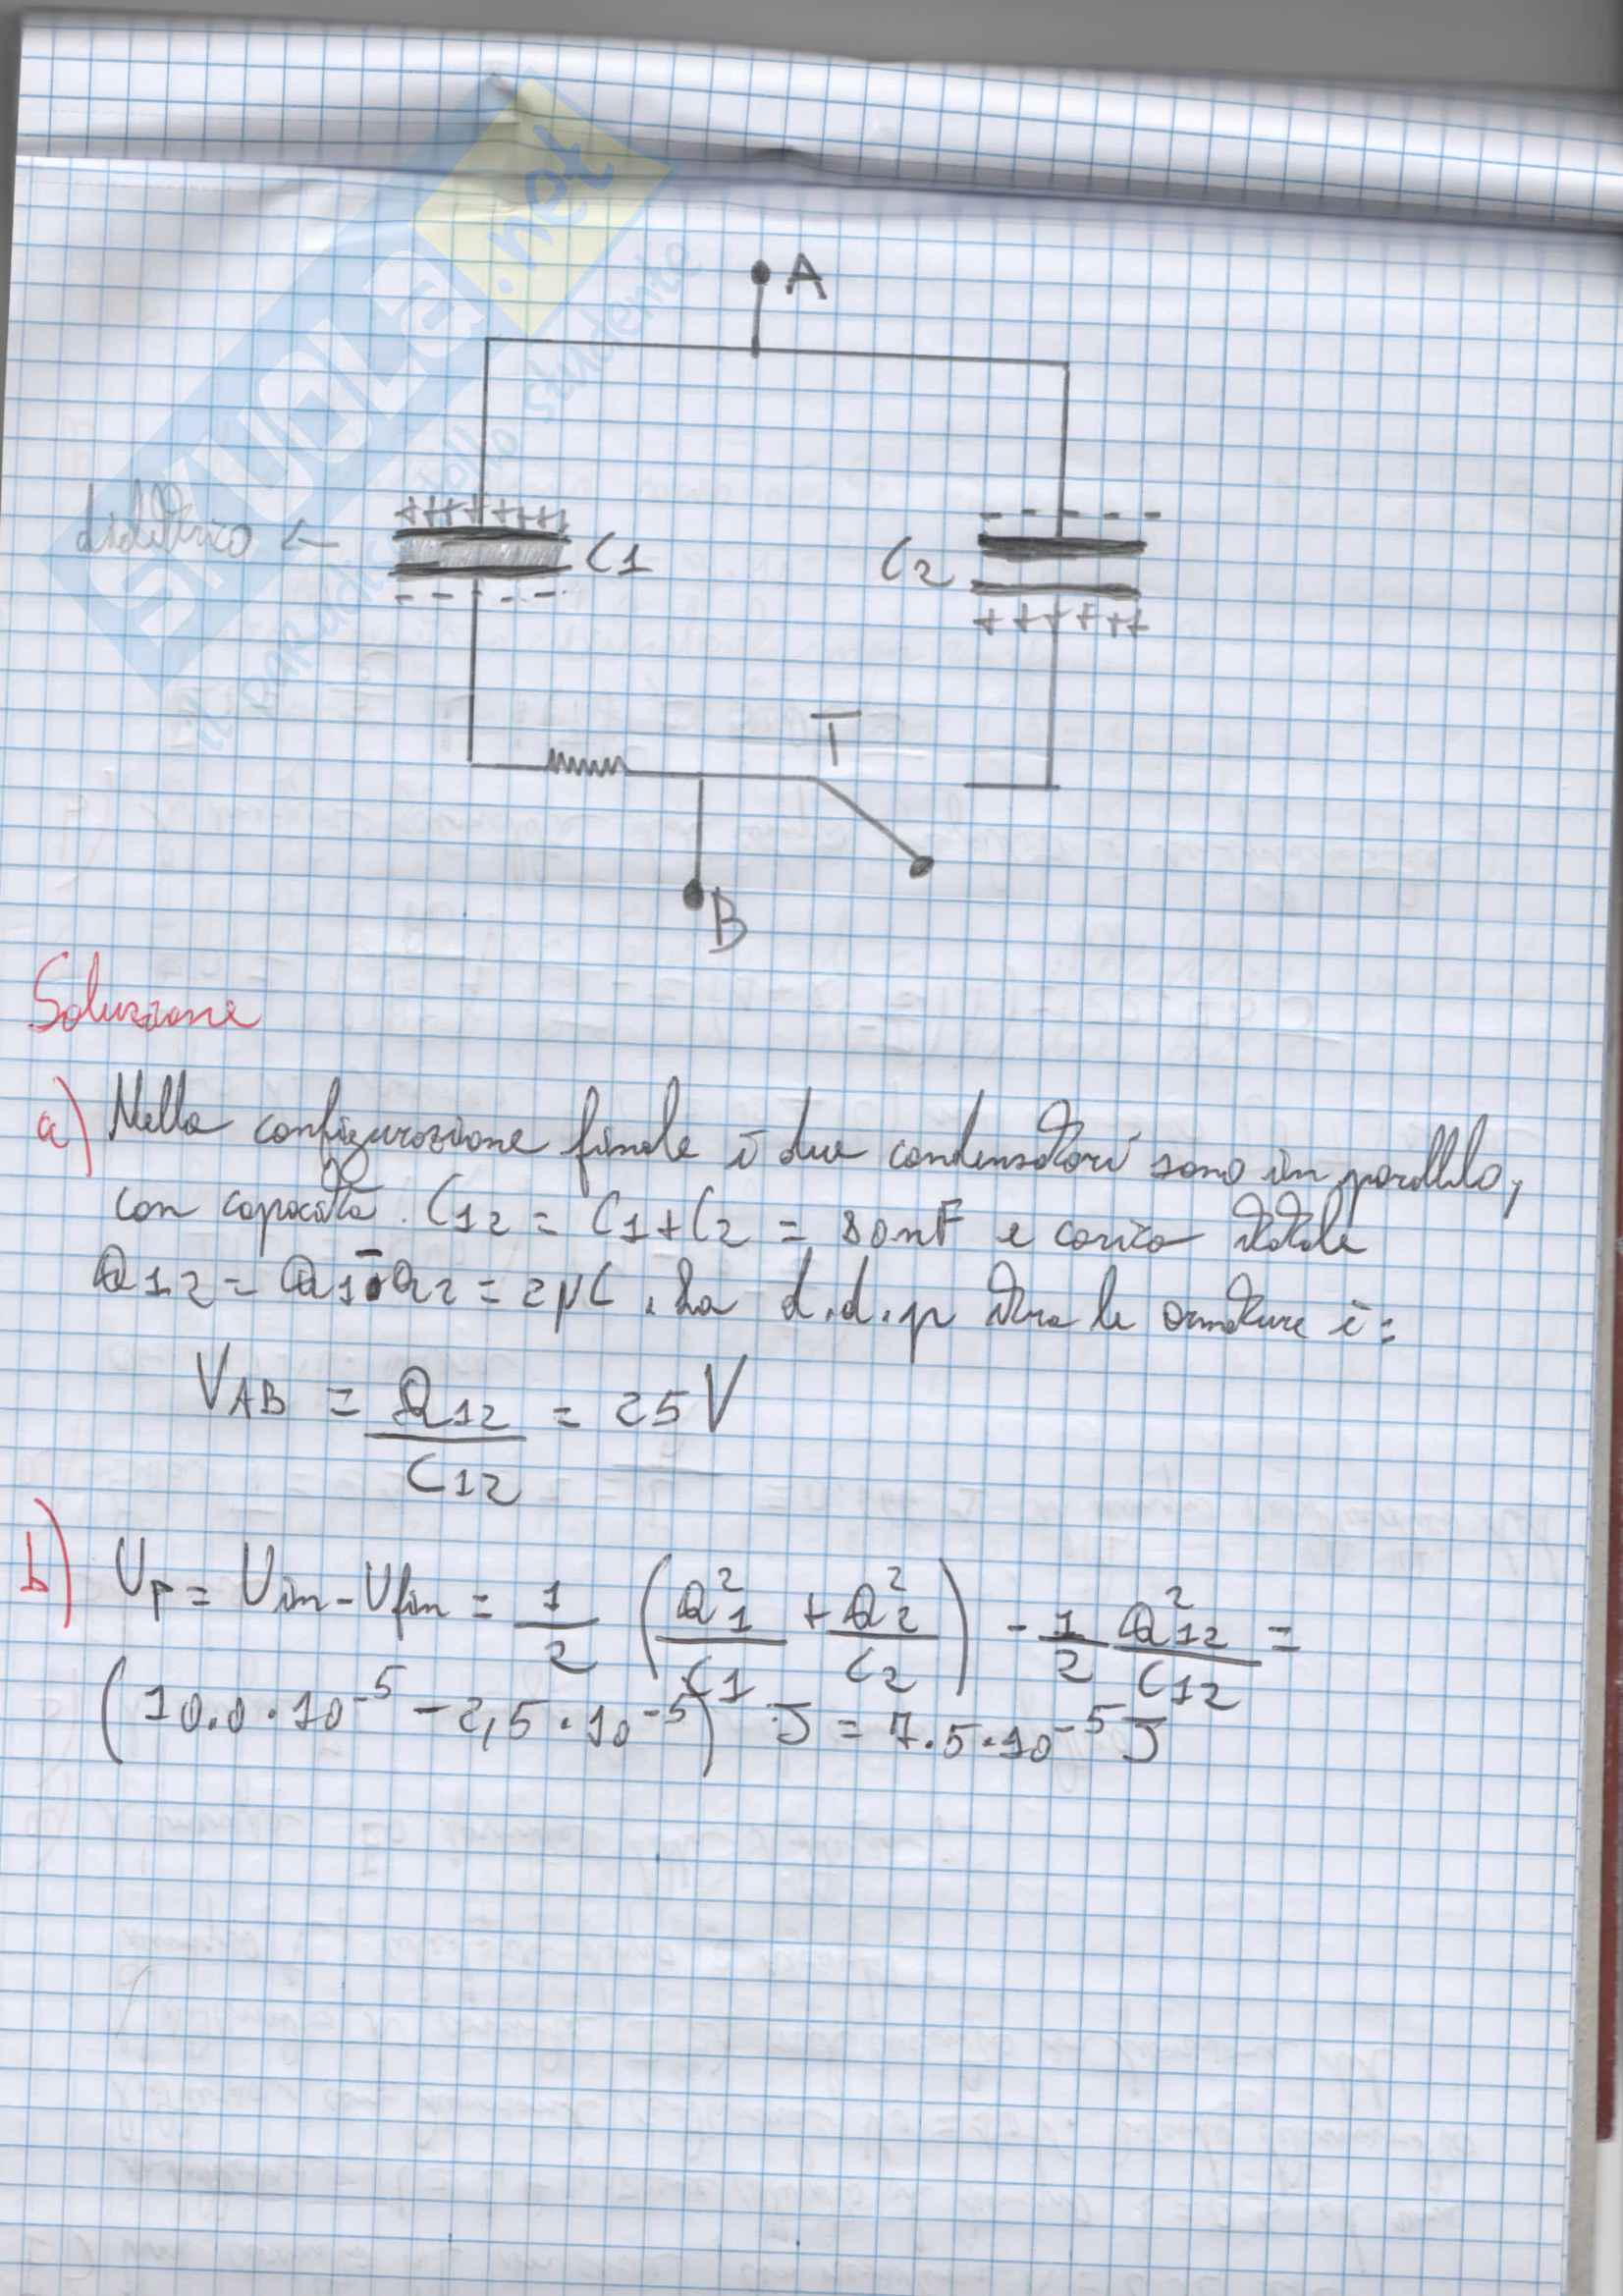 SKUOLA.net
il paradiso dello studente
A
+++++++
dielettrico ← C1
- - - - -
- - - - -
C2
+ + + + + +
T
B
Soluzione
a) Nella configurazione finale i due condensatori sono in parallelo,
con capacità. C12 = C1+C2 = 80nF e carica totale
Q12 = Q1-Q2 = 2μC. La d.d.p tra le armature è:
VAB = Q12/C12 = 25V
b) Up = Uin-Ufin = 1/2 (Q²1/C1 + Q²2/C2) - 1/2 Q²12/C12 =
(10.0·10⁻⁵ - 2,5·10⁻⁵) J = 7.5·10⁻⁵ J